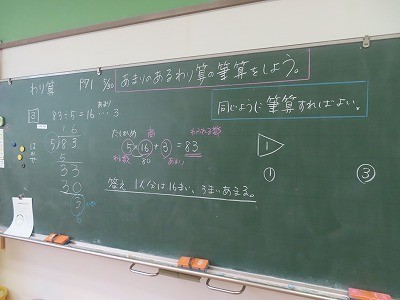 わり算 P71 5/20 あまりのあるわり算の筆算をしよう。
同じように筆算すればよい。
3 83÷5=16…3
あまり
16
5)83
5
33
30
3
たしかめ 商 わられる数
5×16+3=83
わる数 80 あまり
1
① ③
答え 1人分は16まい、3まいあまる。